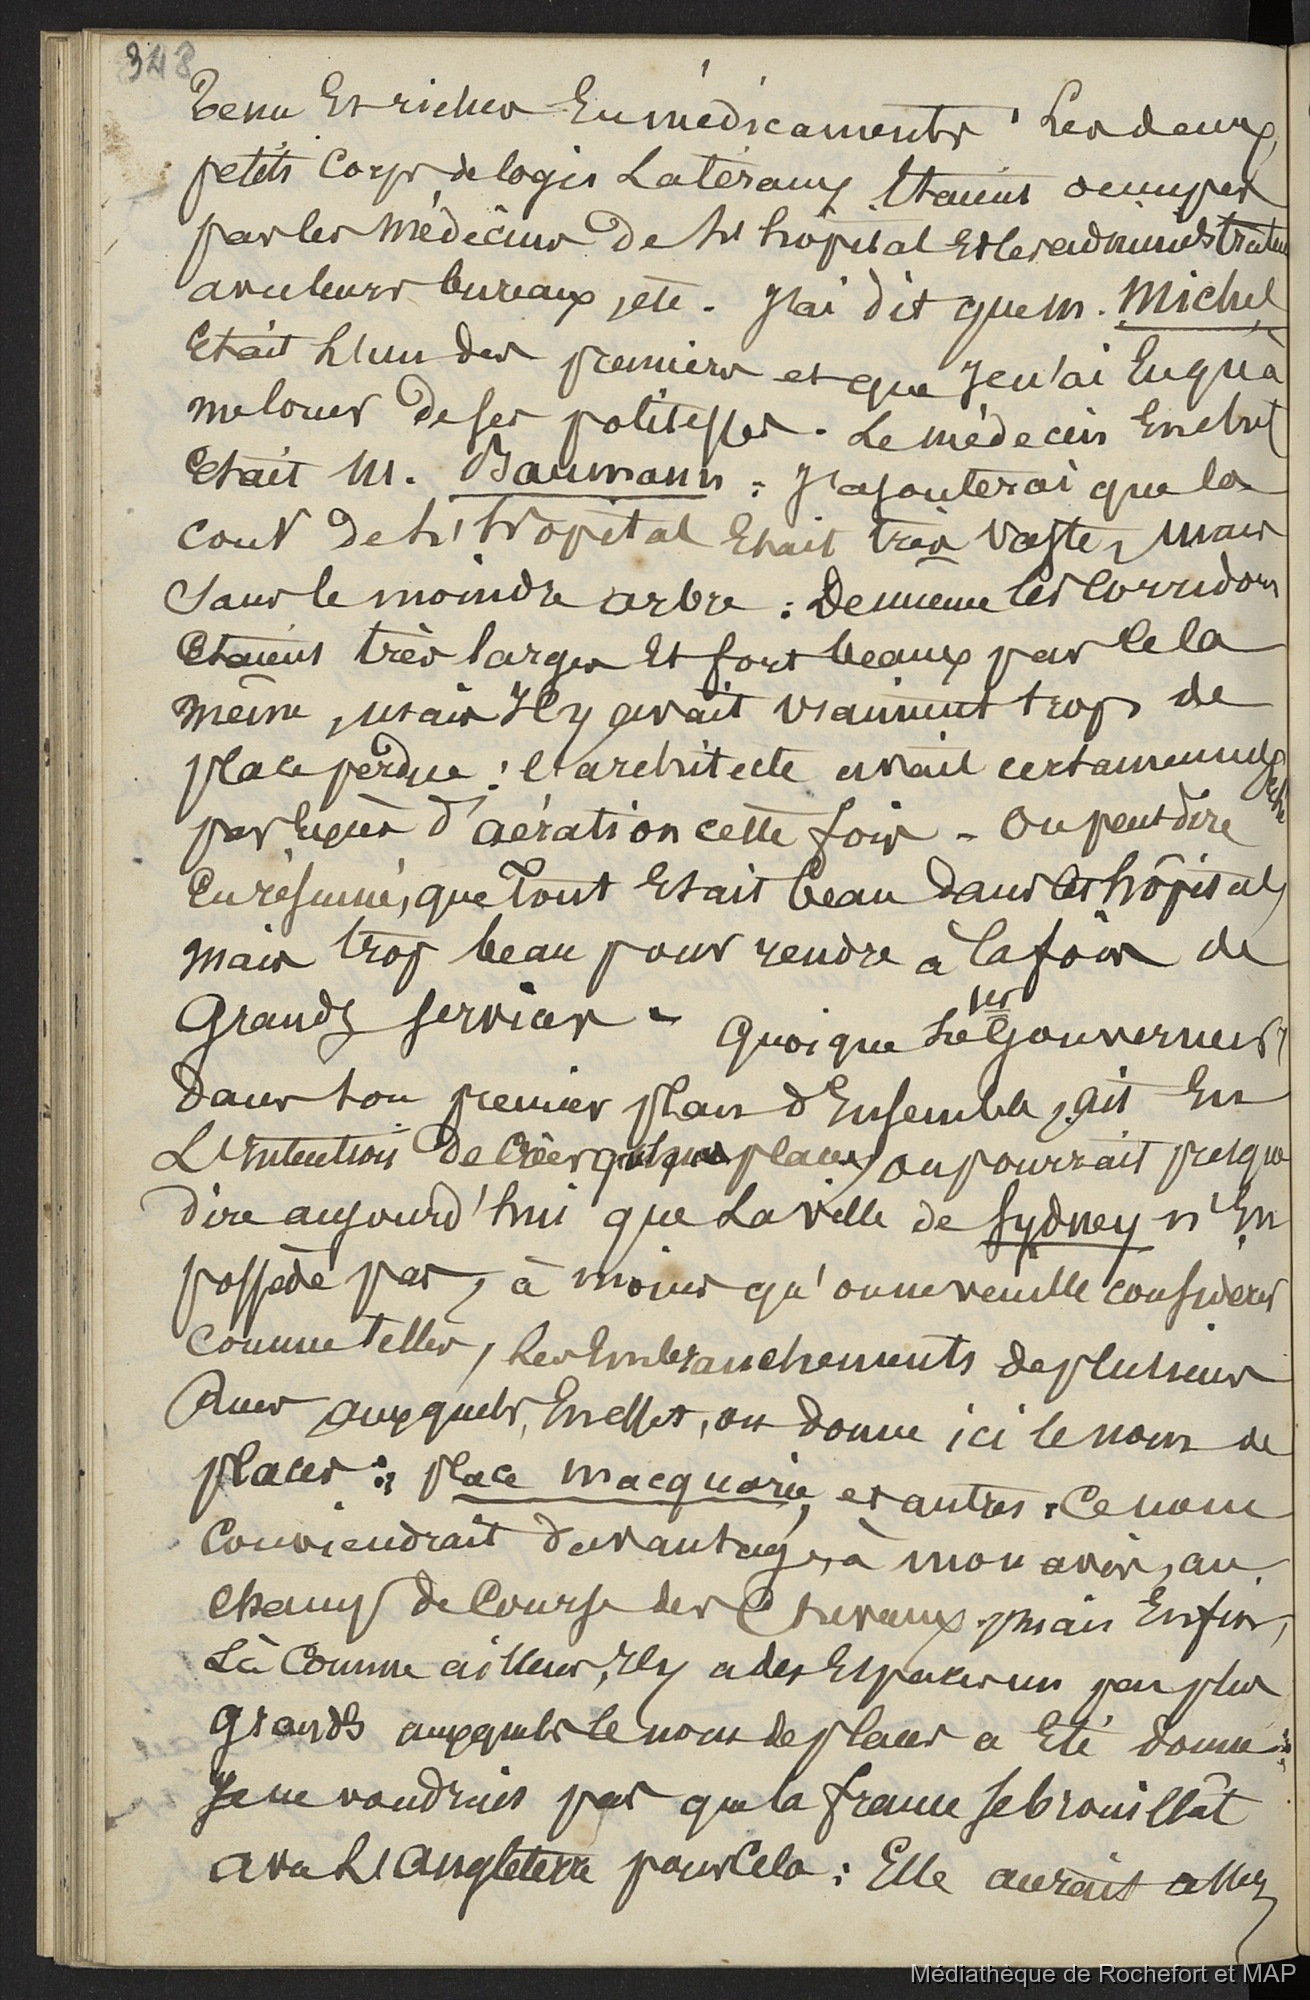 348
tenu Et riches En médicaments ' Les deux
petits Corps de logis Latéraux Etaient occupés
par les Médécins De L'hôpital Et les administrateurs
avec leurs bureaux, etc. J'ai dit que M. Michel
Etait L'un des premiers et que Je n'ai Eu qu'à
me louer De ses politesses. Le médecin En chef
Etait M. Baumann : J'ajouterai que la
cour De L'hôpital Etait très vaste, mais
Sans le moindre arbre : De même les Corridors
Etaient très larges Et fort beaux par cela
même, mais Il y avait vraiment trop de
place perdue : l'architecte avait certainement péché
par Excès D'aération cette fois - On peut dire
En résumé, que Tout Etait beau Dans cet hôpital,
Mais trop beau pour rendre à la fois de
Grands Services - Quoique Le 1er Gouverneur,
Dans son premier plan d'Ensemble, ait Eu
L'Intention De Créer quelques places, on pourrait presque
Dire aujourd'hui que La Ville de Sydney n'En
possède pas, à moins qu'on ne veuille considérer
Comme telles, Les Embranchements de plusieurs
Rues auxquels, En effet, on donne ici le nom de
places : place Macquarie, et autres. Ce nom
Conviendrait Davantage, à mon avis, au
champ De Course des Chevaux, Mais Enfin,
Là Comme ailleurs, Il y a des Espaces un peu plus
Grands auxquels le nom de places a Eté donné :
Je ne voudrais pas que la france se brouillât
avec L'Angleterre pour Cela : Elle aurait assez
Médiathèque de Rochefort et MAP